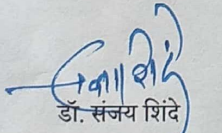 डॉ. संजय शिंदे